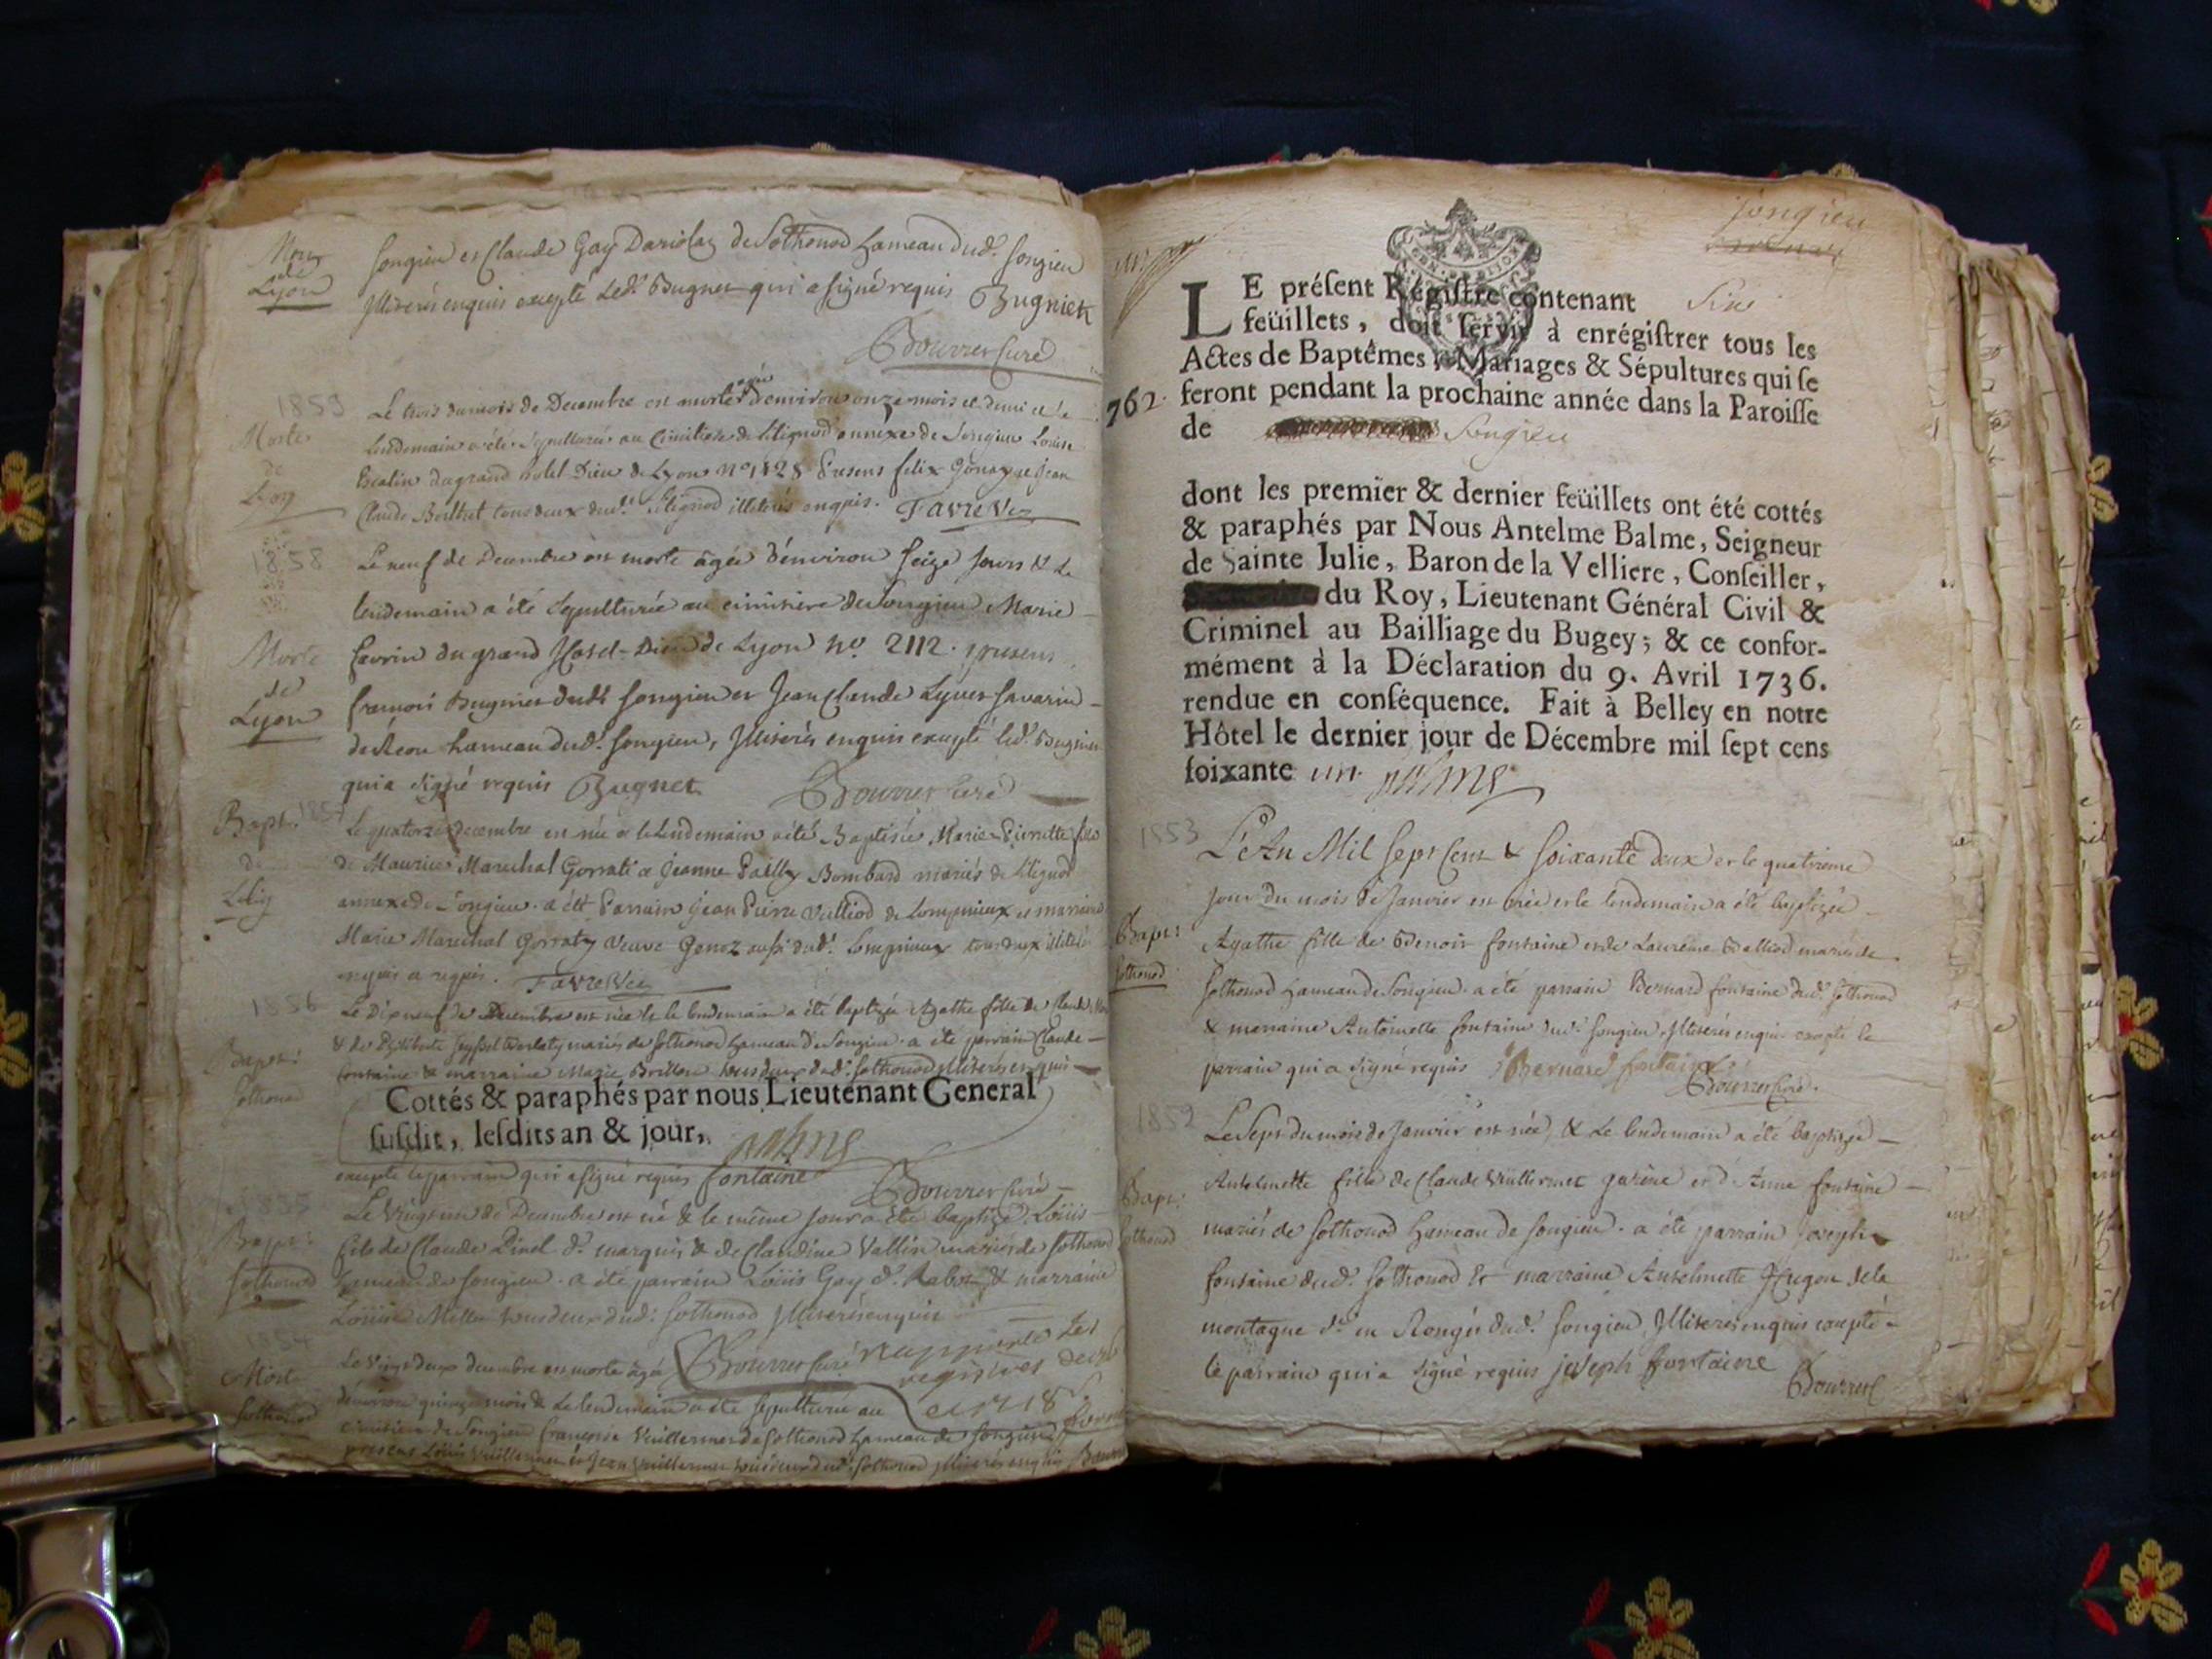 Mort
de
Lyon
Songieu et Claude Gay Dariolaz de Sothonod hameau dud. Songieu
Illiterés enquis excepté led. Bugnet qui a signé requis Bugniet
Bourrer Curé
1859
Morte
de
Le trois du mois de Decembre est morte agée d'environ onze mois et demi et le
lendemain a été sepulturée au Cimitiere de Lilignod annexe de Songieu Louise
du grand hotel Dieu de Lyon n° 1128 Presens felix Gonaz et Jean
Claude Berthet tous deux dud. Lilignod illiterés enquis. Favre Vic
1858
Morte
de
Lyon
Le neuf de Decembre est morte agée d'environ seize jours & le
lendemain a été sepulturée au cimitiere de Songieu Marie
du grand Hotel-Dieu de Lyon n° 2112. presens
francois Bugniet dud. Songieu et Jean Claude Lyvet Savarin
hameau dud. Songieu, Illiterés enquis excepté led. Bugniet
qui a signé requis Bugnet Bourrer Curé
Bapt.
de
Lilig
Le quatorze decembre est née et le lendemain a été Baptisée Marie-Pierrette fille
de Maurice Marechal Gorrati et Jeanne Pailly Bombard mariés de Lilignod
annexe de Songieu. a été Parrain Jean Pierre Valliod de Lompnieux et marraine
Marie Marechal Gorraty veuve Genoz aussi dud. Lompnieux tous deux illiterés
enquis et requis. Favre Vic
1856
Bapt:
Sothonod
Le Dixneuf de Decembre est née & le lendemain a été baptizée Agathe fille de Claude
mariés de Sothonod hameau de Songieu. a été parrain Claude
fontaine & marraine Marie Brillon tous deux dud. Sothonod Illiterés enquis
Cottés & paraphés par nous Lieutenant General
susdit, lesdits an & jour,
excepté le parrain qui a signé requis fontaine Bourrer Curé
Bapt:
Sothonod
Le vingt un de Decembre est né & le même jour a été baptizé Louis
fils de Claude Pinel d. marquis & de Claudine Vallin mariés de Sothonod
hameau de Songieu. a été parrain Louis Gay d. & marraine
Louise Millet tous deux dud. Sothonod Illiterés enquis
Bourrer Curé
Mort
Sothonod
Le vingt deux decembre est morte agée
d'environ quinze mois & le lendemain a été sepulturée au
cimitiere de Songieu françoise Vuillermet de Sothonod hameau de Songieu
presens Louis Vuillermet & Jean Vuillermet tous deux dud. Sothonod Illiterés enquis
Songieu
LE présent Régistre contenant
feüillets, doit servir à enrégistrer tous les
Actes de Baptêmes, Mariages & Sépultures qui se
762.
feront pendant la prochaine année dans la Paroisse
de Songieu
dont les premier & dernier feüillets ont été cottés
& paraphés par Nous Antelme Balme, Seigneur
de Sainte Julie, Baron de la Velliere, Conseiller,
du Roy, Lieutenant Général Civil &
Criminel au Bailliage du Bugey; & ce confor-
mément à la Déclaration du 9. Avril 1736.
rendue en conséquence. Fait à Belley en notre
Hôtel le dernier jour de Décembre mil sept cens
soixante un. Balme
1853
Bapt:
Sothonod
L'An Mil Sept Cent & soixante deux et le quatrieme
jour du mois de Janvier est née et le lendemain a été baptizée
Agathe fille de Benoit fontaine et de Laurence Balliod mariés de
Sothonod hameau de Songieu. a été parrain Bernard fontaine dud. Sothonod
& marraine Antoinette fontaine dud. Songieu Illiterés enquis excepté le
parrain qui a signé requis Bernard fontaine
Bourrer Curé.
1852
Bapt:
Sothonod
Le Sept du mois de Janvier est née, & le lendemain a été baptizée
Antelmette fille de Claude Vuillermet et d'Anne fontaine
mariés de Sothonod hameau de Songieu. a été parrain Joseph
fontaine dud. Sothonod & marraine Antelmette Hugon de la
montagne d. en Rongés dud. Songieu, Illiterés enquis excepté
le parrain qui a signé requis joseph fontaine
Bourrer